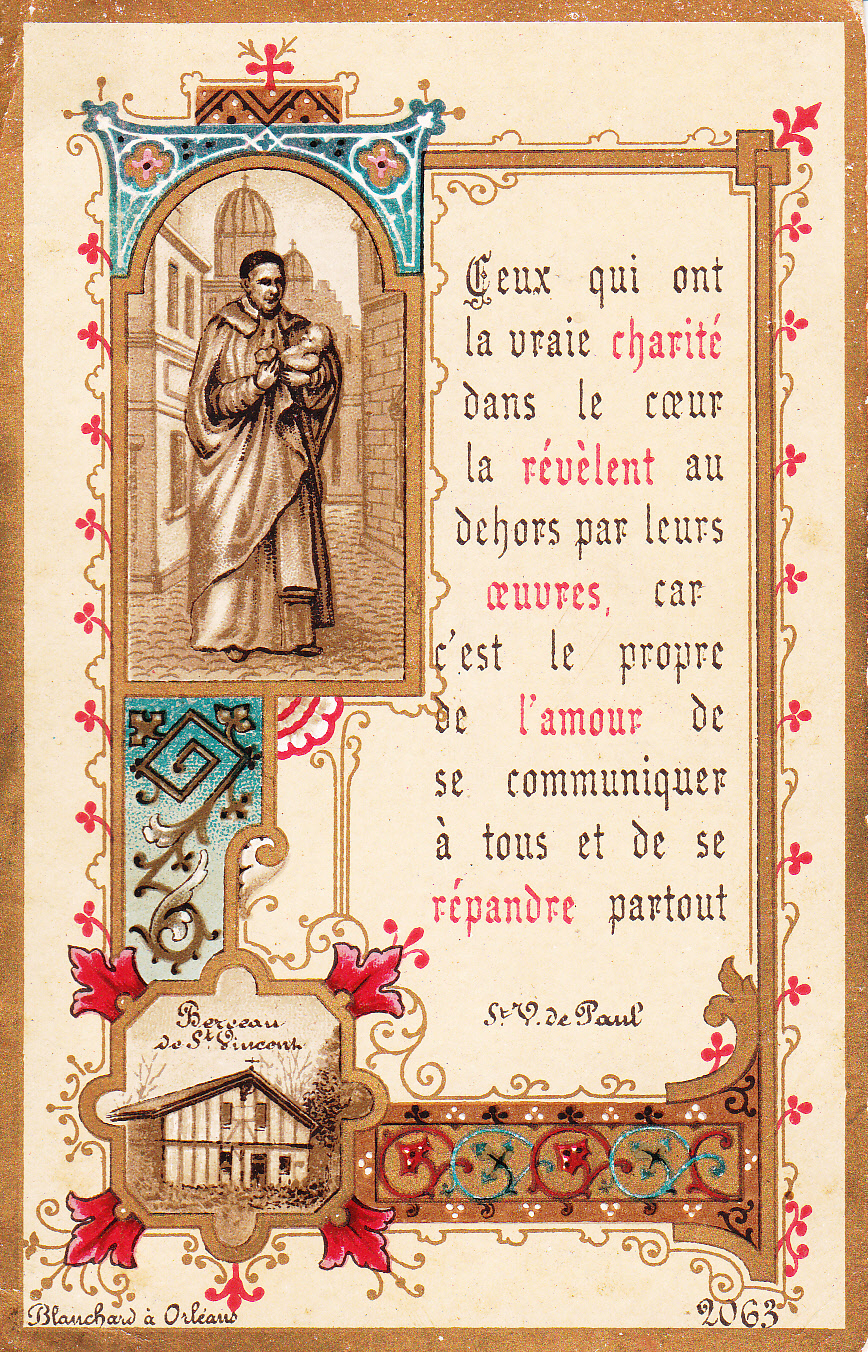 Ceux qui ont
la vraie charité
dans le cœur
la révèlent au
dehors par leurs
œuvres, car
c'est le propre
de l'amour de
se communiquer
à tous et de se
répandre partout
St. V. de Paul
Berceau
de St. Vincent
Blanchard à Orléans
2063